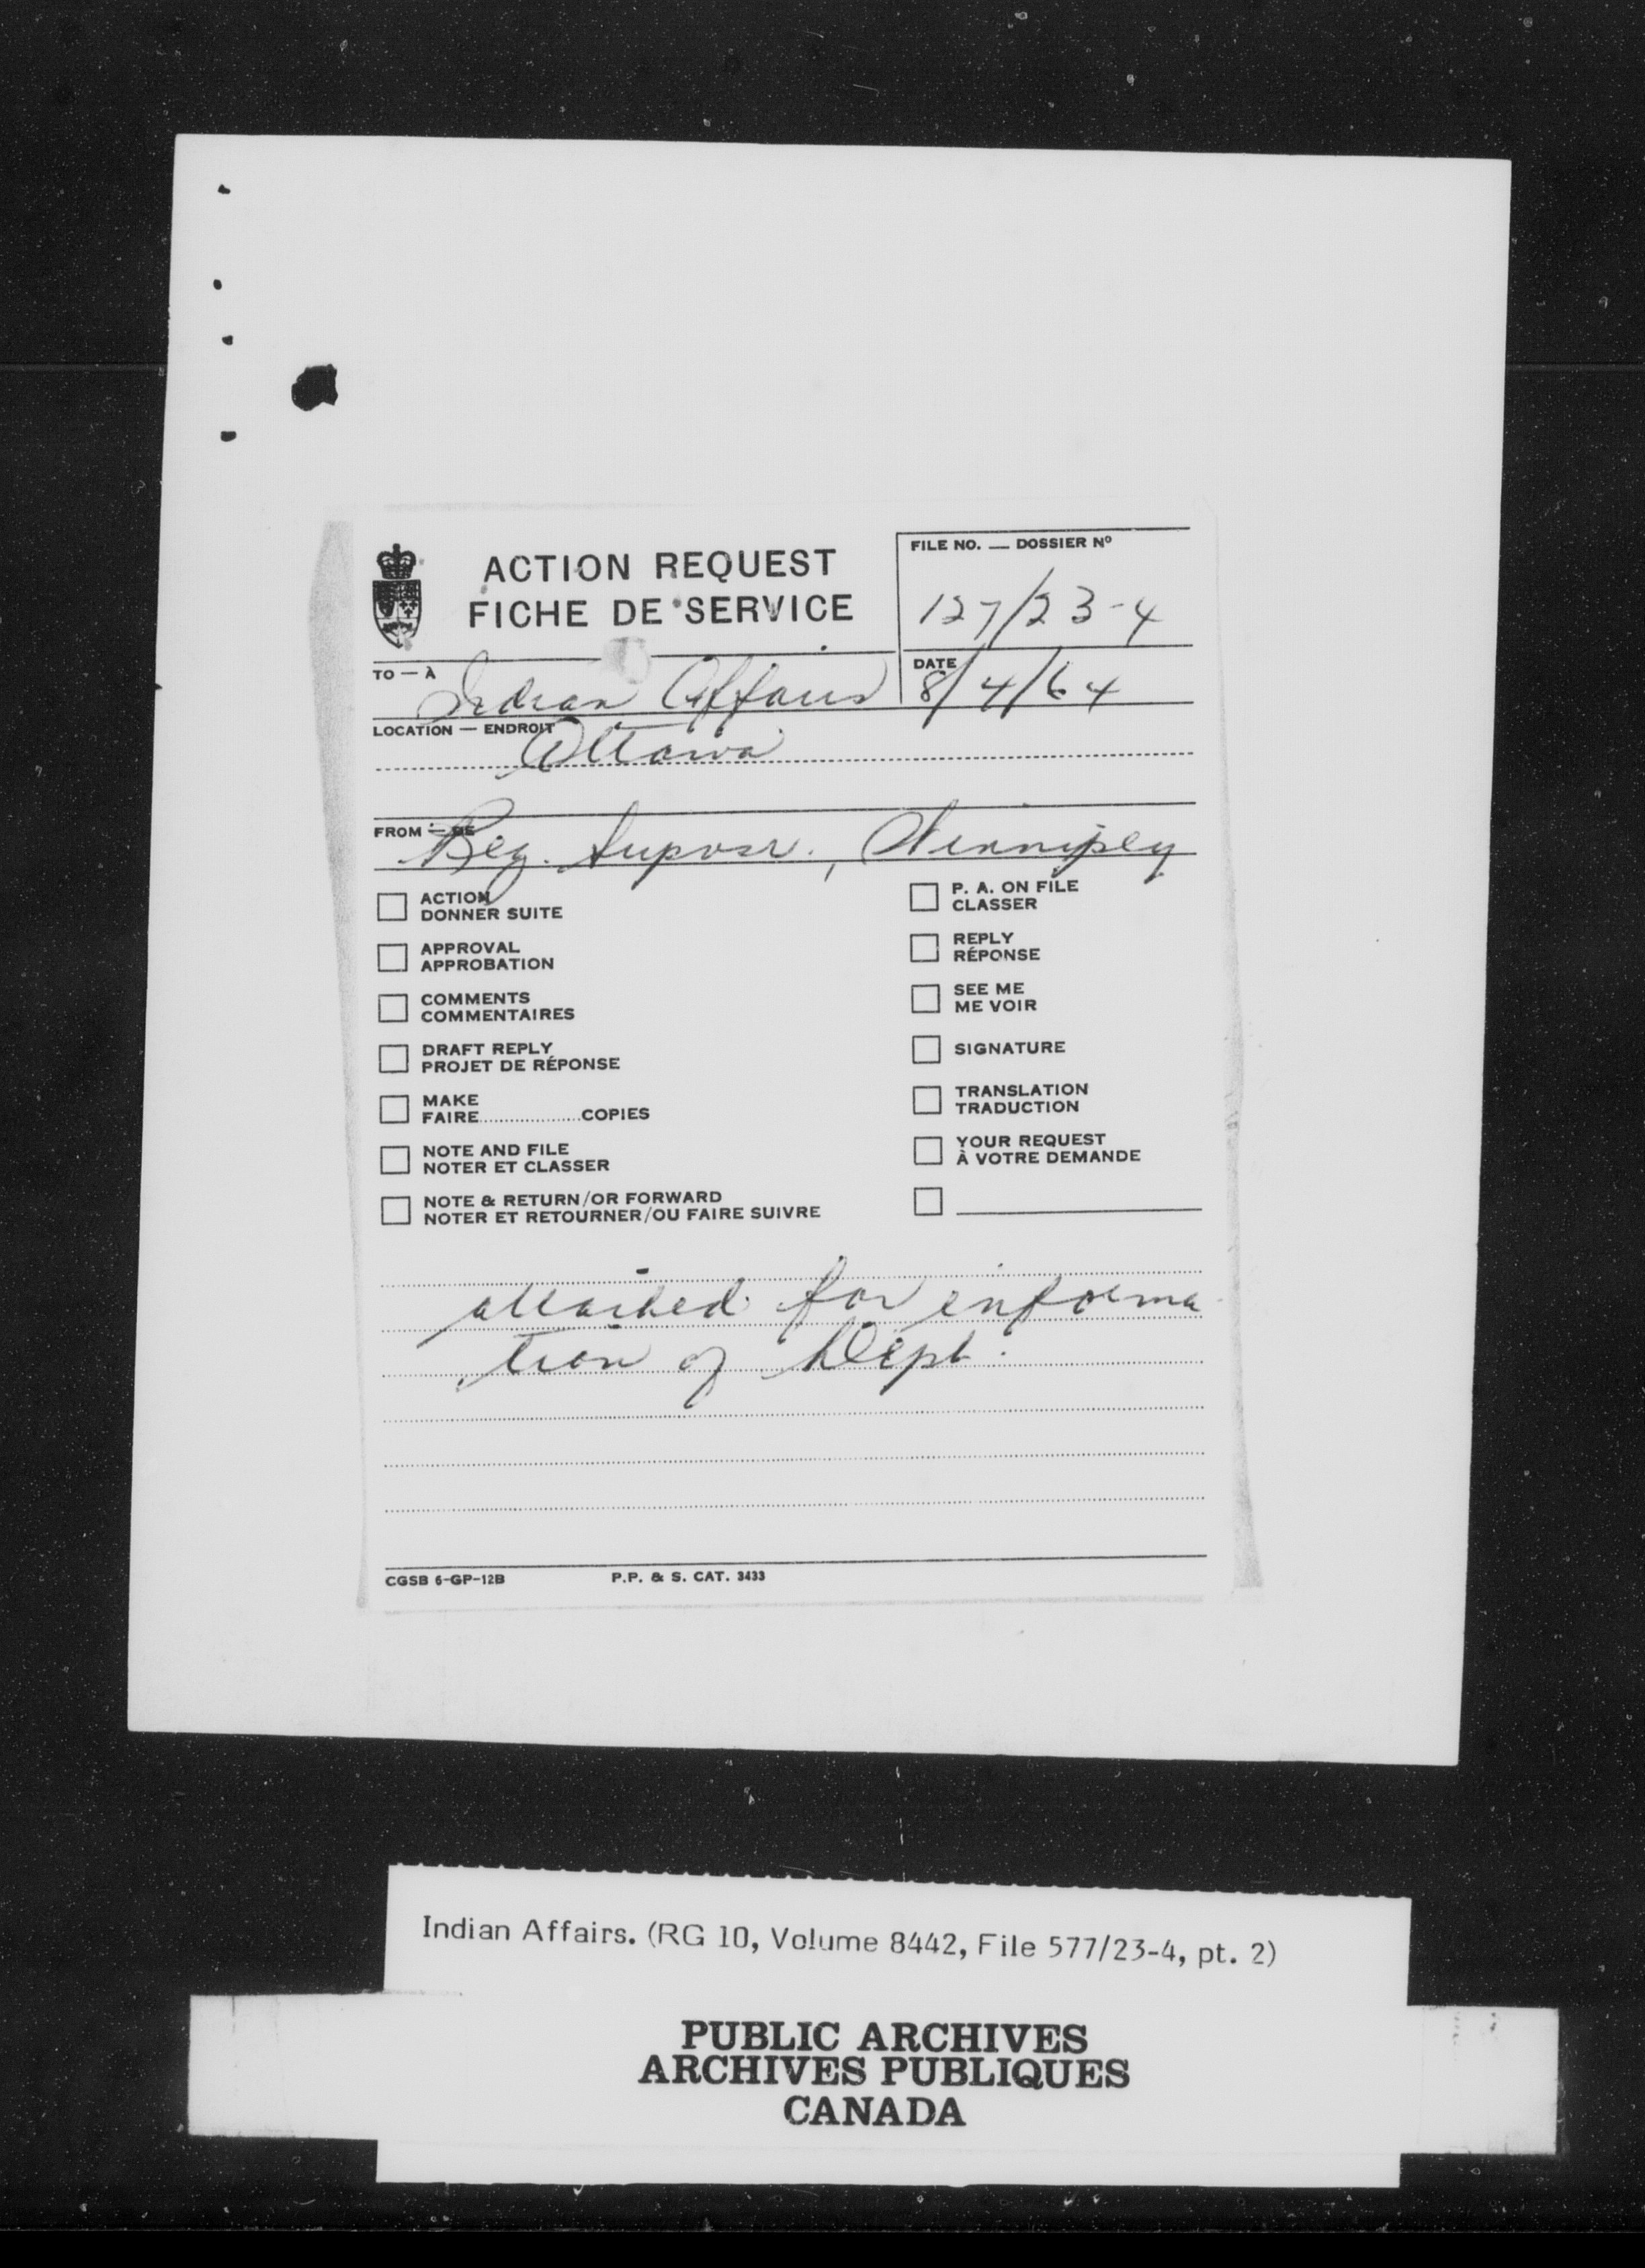 ACTION REQUEST
FICHE DE SERVICE
FILE NO. — DOSSIER Nº
127/23-4
TO — À
Indian Affairs
DATE
8/4/64
LOCATION — ENDROIT
Ottawa
FROM — DE
Reg. Supvsr., Winnipeg
ACTION
DONNER SUITE
APPROVAL
APPROBATION
COMMENTS
COMMENTAIRES
DRAFT REPLY
PROJET DE RÉPONSE
MAKE
FAIRE..................COPIES
NOTE AND FILE
NOTER ET CLASSER
NOTE & RETURN/OR FORWARD
NOTER ET RETOURNER/OU FAIRE SUIVRE
P. A. ON FILE
CLASSER
REPLY
RÉPONSE
SEE ME
ME VOIR
SIGNATURE
TRANSLATION
TRADUCTION
YOUR REQUEST
À VOTRE DEMANDE
attached for informa-
tion of Dept.
CGSB 6-GP-12B P.P. & S. CAT. 3433
Indian Affairs. (RG 10, Volume 8442, File 577/23-4, pt. 2)
PUBLIC ARCHIVES
ARCHIVES PUBLIQUES
CANADA